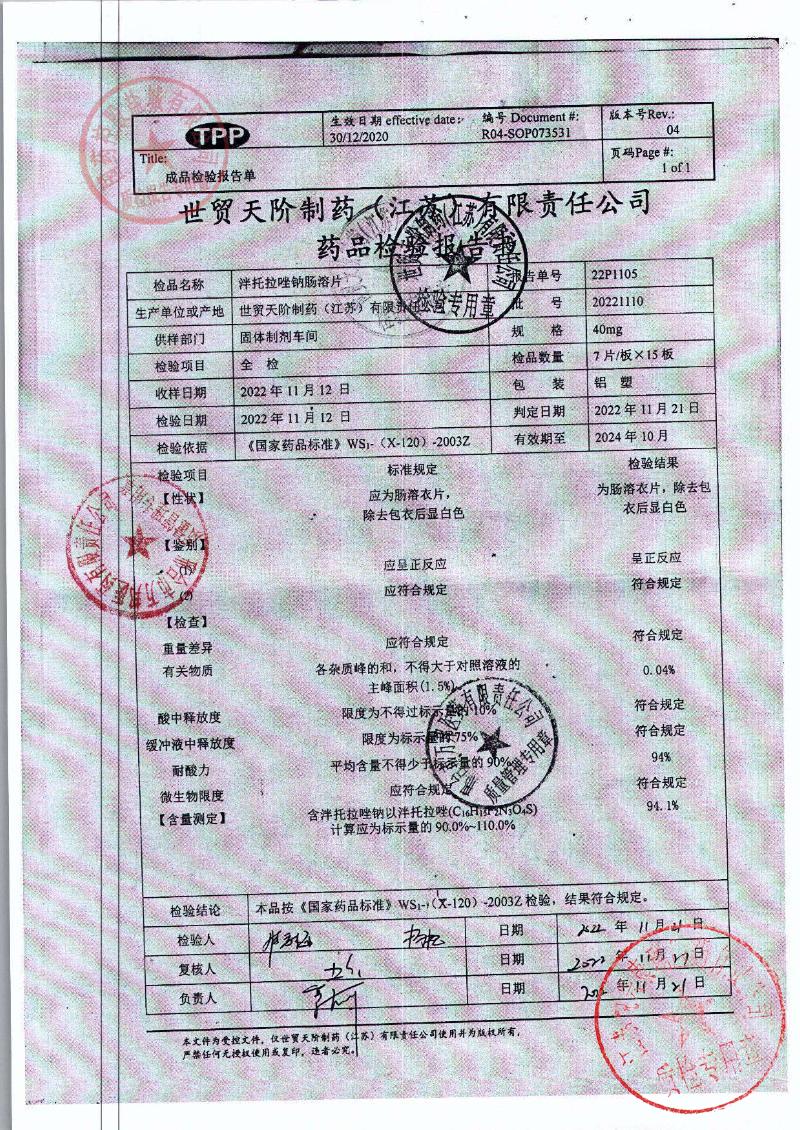 TPP
生效日期 effective date:
30/12/2020
编号 Document #:
R04-SOP073531
版本号Rev.:
04
Title:
成品检验报告单
页码Page #:
1 of 1
世贸天阶制药（江苏）有限责任公司
药品检验报告书
检品名称 泮托拉唑钠肠溶片 报告单号 22P1105
生产单位或产地 世贸天阶制药（江苏）有限责任公司 批 号 20221110
供样部门 固体制剂车间 规 格 40mg
检验项目 全 检 检品数量 7 片/板×15 板
收样日期 2022 年 11 月 12 日 包 装 铝 塑
检验日期 2022 年 11 月 12 日 判定日期 2022 年 11 月 21 日
检验依据 《国家药品标准》WS₁-（X-120）-2003Z 有效期至 2024 年 10 月
检验项目 标准规定 检验结果
【性状】 应为肠溶衣片， 为肠溶衣片，除去包
除去包衣后显白色 衣后显白色
【鉴别】
(1) 应呈正反应 呈正反应
(2) 应符合规定 符合规定
【检查】
重量差异 应符合规定 符合规定
有关物质 各杂质峰的和，不得大于对照溶液的 0.04%
主峰面积(1.5%)
酸中释放度 限度为不得过标示量的 10% 符合规定
缓冲液中释放度 限度为标示量的 75% 符合规定
耐酸力 平均含量不得少于标示量的 90% 94%
微生物限度 应符合规定 符合规定
【含量测定】 含泮托拉唑钠以泮托拉唑(C₁₆H₁₅F₂N₃O₄S) 94.1%
计算应为标示量的 90.0%~110.0%
检验结论 本品按《国家药品标准》WS₁-（X-120）-2003Z 检验，结果符合规定。
检验人 日期 2022 年 11 月 21 日
复核人 日期 2022 年 11 月 21 日
负责人 日期 2022 年 11 月 21 日
本文件为受控文件，仅世贸天阶制药（江苏）有限责任公司使用并为版权所有，
严禁任何无授权使用或复印，违者必究。
世贸天阶制药(江苏)有限责任公司
检验专用章
质量管理专用章
质检专用章